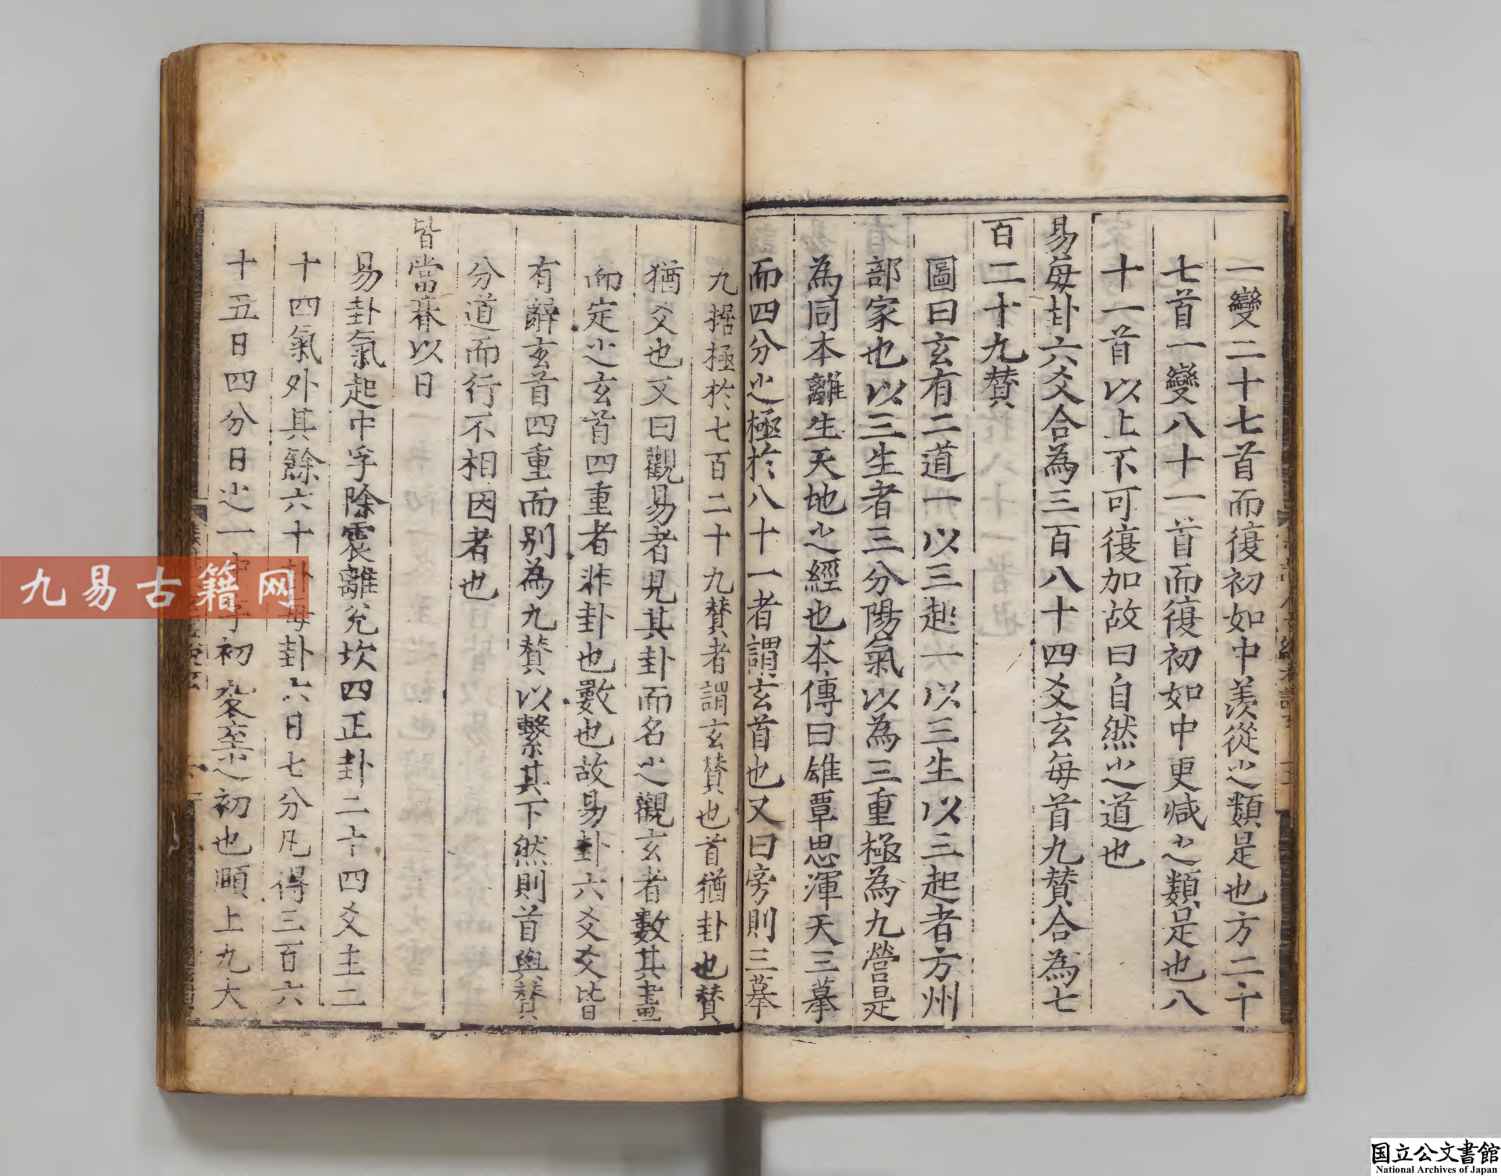 一變二十七首而復初如中羨從之類是也方二十
七首一變八十一首而復初如中更減之類是也八
十一首以上不可復加故曰自然之道也
易每卦六爻合為三百八十四爻玄每首九賛合為七
百二十九賛
圖曰玄有二道一以三起一以三生以三起者方州
部家也以三生者三分陽氣以為三重極為九營是
為同本離生天地之經也本傳曰雄覃思渾天三摹
而四分之極於八十一者謂玄首也又曰旁則三摹
九据極於七百二十九賛者謂玄賛也首猶卦也賛
猶爻也又曰觀易者見其卦而名之觀玄者數其畫
而定之玄首四重者非卦也數也故易卦六爻爻皆
有辭玄首四重而别為九賛以繫其下然則首與賛
分道而行不相因者也
皆當朞以日
易卦氣起中孚除震離兊坎四正卦二十四爻主二
十四氣外其餘六十卦每卦六日七分凡得三百六
十五日四分日之一中孚初冬至之初也頤上九大
九易古籍网
国立公文書館
National Archives of Japan